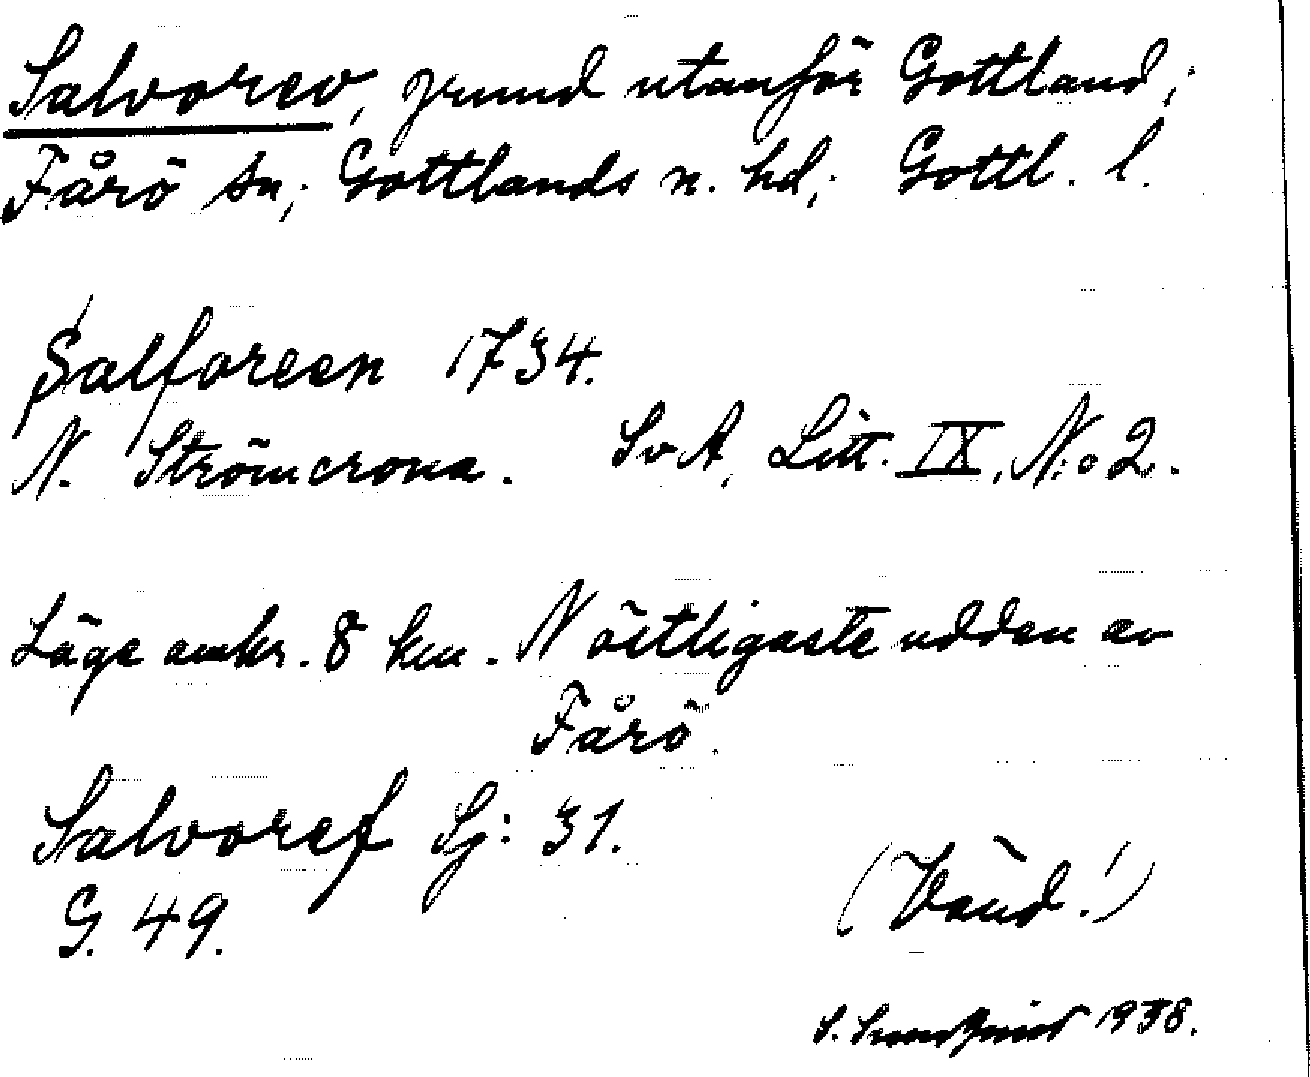 Salvorev, grund utanför Gottland;
Fårö sn; Gottlands n. hd; Gottl. l.
Salforeen 1734.
N. Strömcrona. SvA, Litt. IX, N:o 2.
Läge omkr. 8 km. N östligaste udden av
Fårö.
Salvoref Sj: 31.
G. 49.
(Vänd!)
S. 1938.